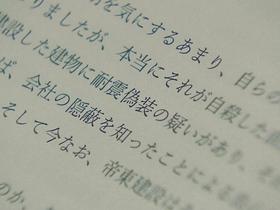 を気にするあまり、自らの
りましたが、本当にそれが自殺した
建設した建物に耐震偽装の疑いがあり、
ば、会社の隠蔽を知ったことによる
そして今なお、帝東建設は
のか、